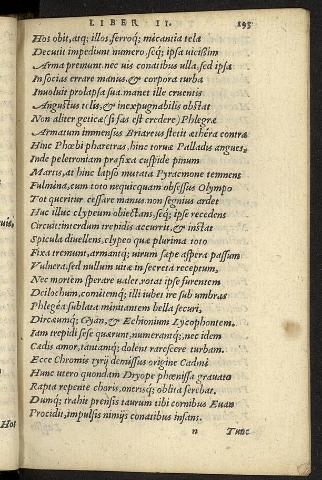 LIBER II. 195
Hos obit, atq; illos, ferroq; micantia tela
Decutit impediunt numero, seq; ipsa uicissim
Arma premunt. nec uis conatibus ulla, sed ipsa
In socias errare manus, & corpora turba
Inuoluit prolapsa sua. manet ille cruentis
Angustus telis, & inexpugnabilis obstat
Non aliter geticæ (si fas est credere) Phlegræ
Armatum immensus Briareus stetit æthera contra
Hinc Phœbi pharetras, hinc toruæ Palladis angues,
Inde peletroniam præfixa cuspide pinum
Martis, at hinc lapso mutata Pyracmone temnens
Fulmina, cum toto nequicquam obsessus Olympo
Tot queritur cessare manus. non segnius ardet
Huc illuc clypeum obiectans, seq; ipse recedens
Circuit: interdum trepidis accurrit, & instat
Spicula diuellens, clypeo quæ plurima toto
Fixa tremunt, armantq; uirum sæpe aspera passum
Vulnera, sed nullum uitæ in secreta receptum,
Nec mortem sperare ualet. rotat ipse furentem
Deilochum, comitemq; illi iubet ire sub umbras
Phlegéa sublata minitantem bella securi,
Dircæumq; Gyan, & Echionium Lycophontem.
Iam trepidi sese quærunt, numerantq;, nec idem
Cædis amor, tantamq; dolent rarescere turbam.
Ecce Chromis tyrij demissus origine Cadmi
Hunc utero quondam Dryope phœnissa grauato
Rapta repente choris, onerisq; oblita ferebat.
Dumq; trahit prensis taurum tibi cornibus Euan
Procidit, impulsis nimijs conatibus infans.
n Tunc
Hos